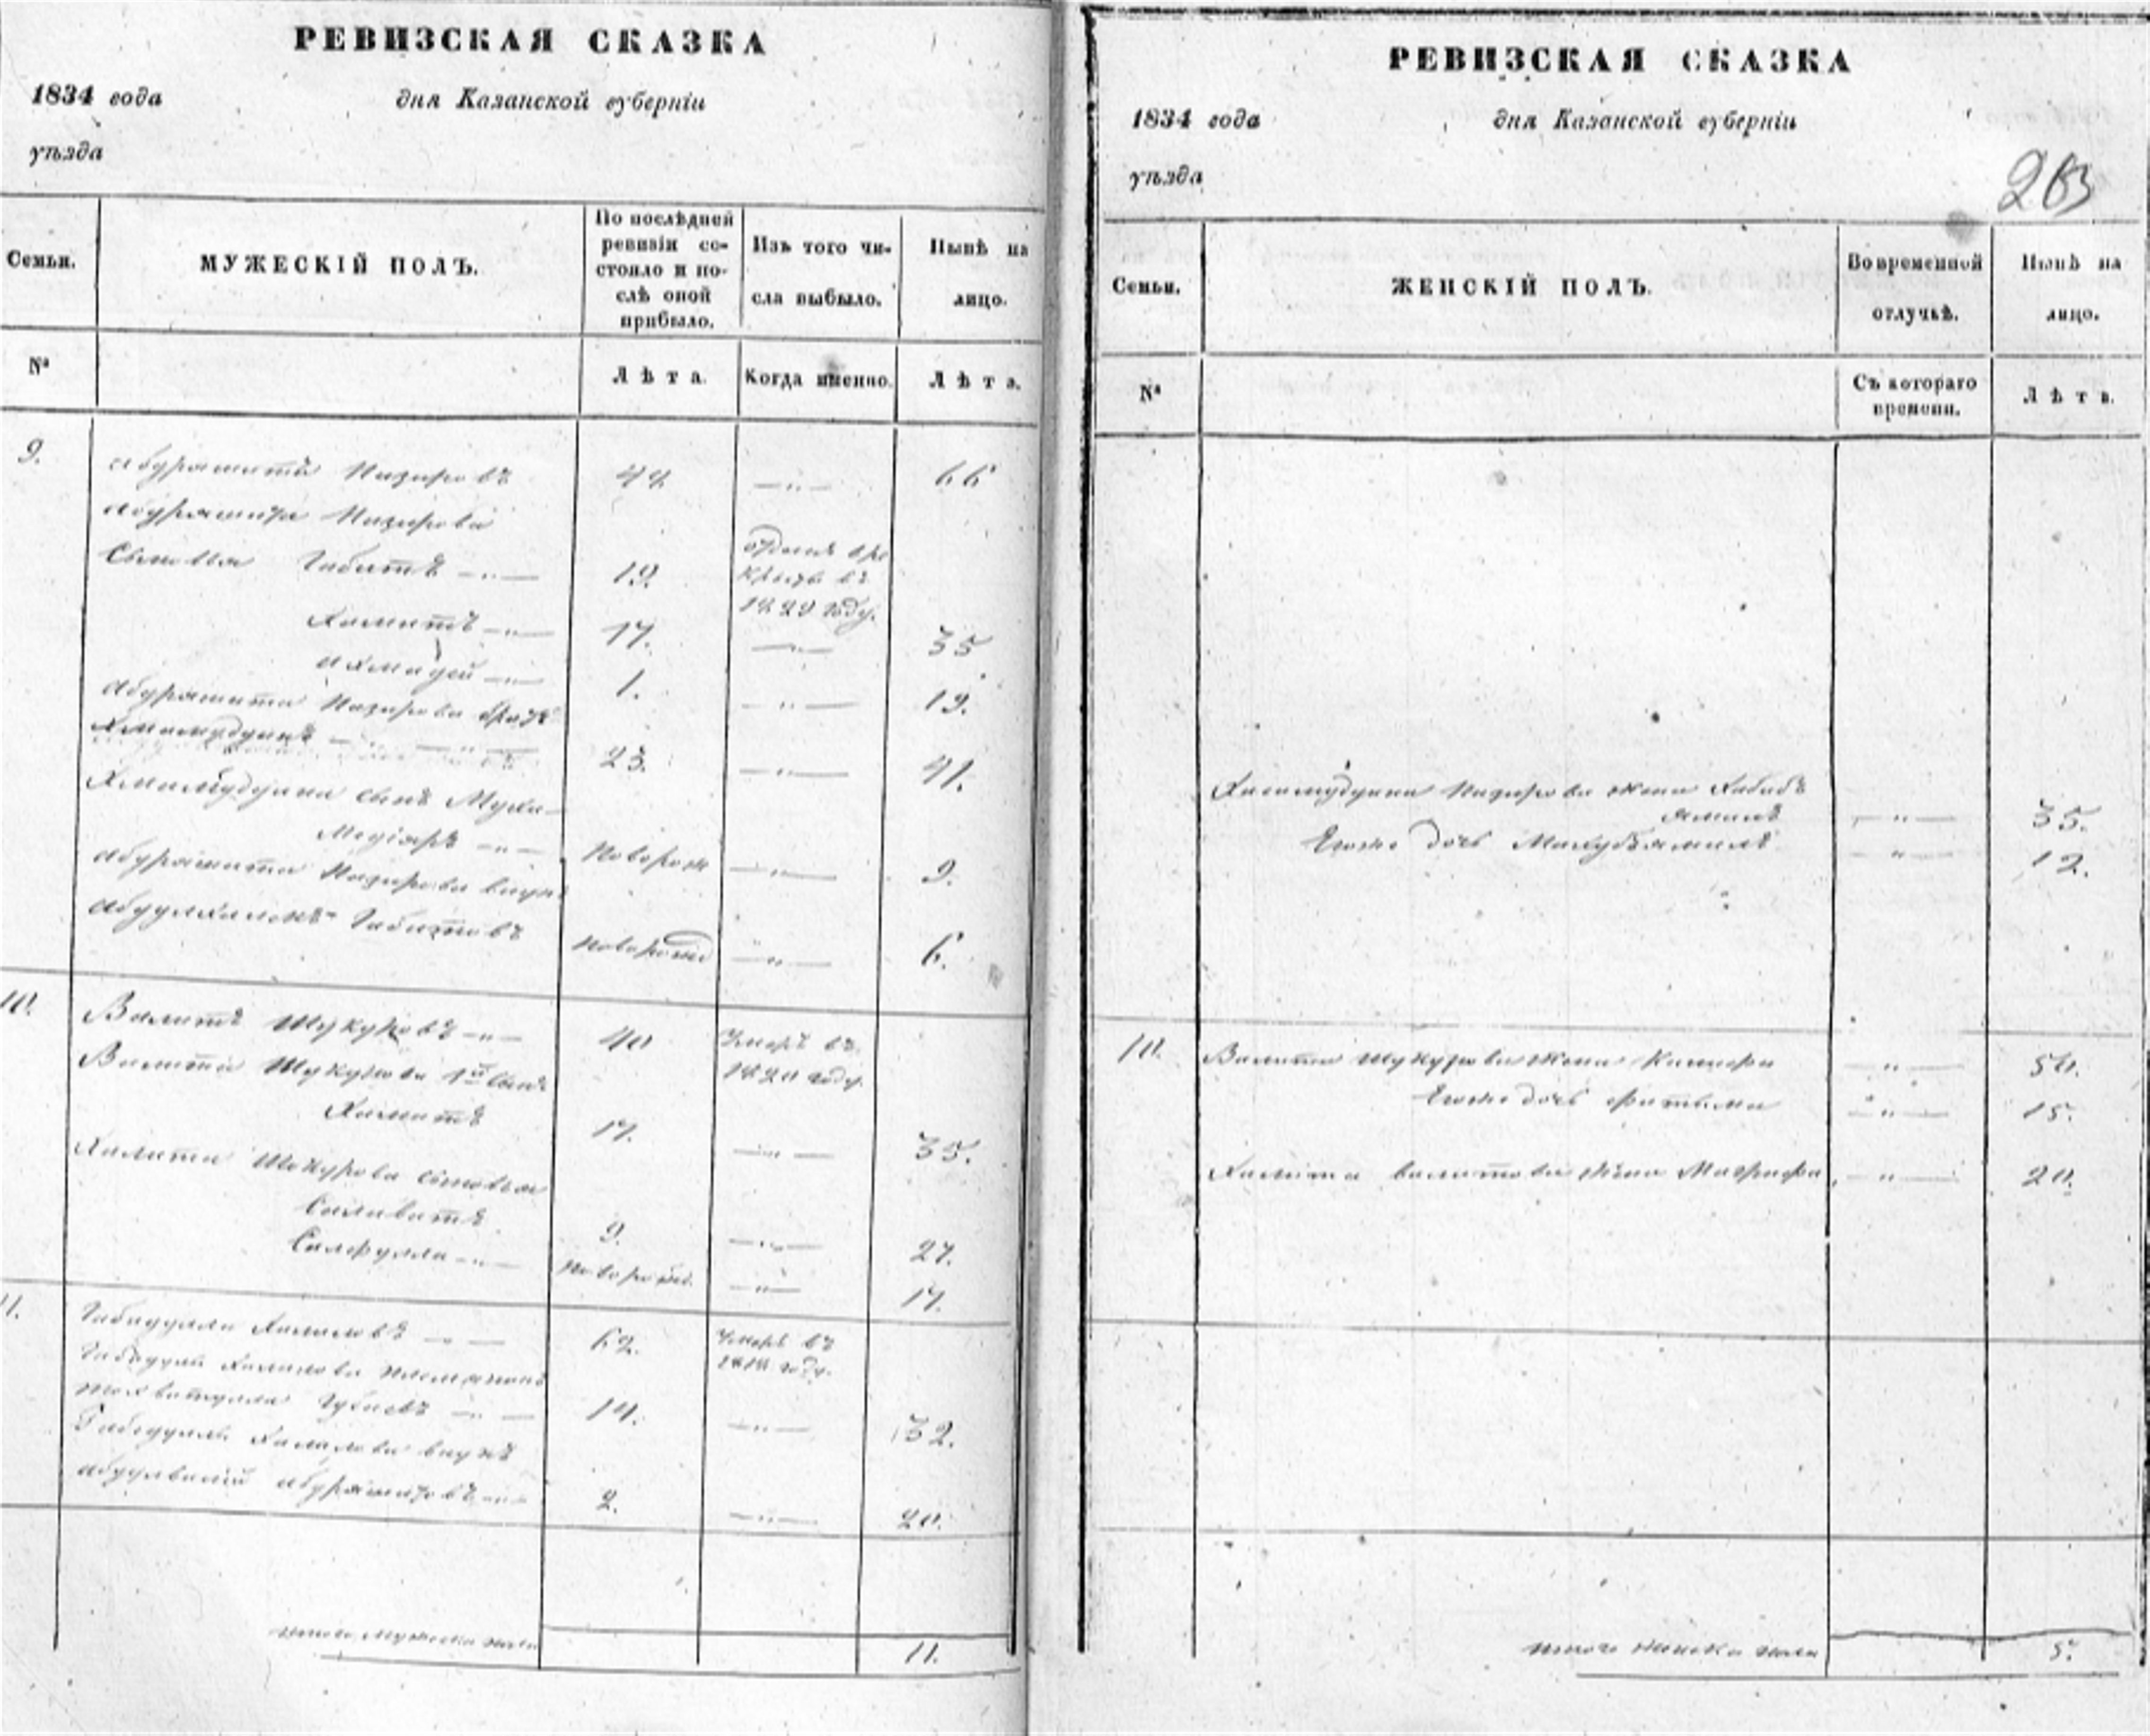 РЕВИЗСКАЯ СКАЗКА
1834 года дня Казанской губерніи
уѣзда
Семьи.
МУЖЕСКІЙ ПОЛЪ.
По послѣдней ревизіи состояло и послѣ оной прибыло.
Изъ того числа выбыло.
Нынѣ на лицо.
№
Лѣта.
Когда именно.
Лѣта.
9. Абурашитъ Назировъ 48 66
Абурашита Назирова
Сыновья Габитъ 19. въ 1829 году.
Халитъ 17. 35
Ахмадей 1. 19.
Абурашита Назирова братъ
23. 41.
сынъ Муха-
медіаръ Новорож 9.
Абурашита Назирова внукъ
Габитовъ Новорожд 6.
10. Валитъ Шукуровъ 40 Умеръ въ
Валита Шукурова 1й сынъ
Халитъ 17. 35.
Халита Шокурова сыновья
Салаватъ 9. 27.
Сайфулла Новорожд. 17.
11. Габидулла Халиловъ 62. Умеръ въ году.
Габидуллы Халилова племянникъ
14. 32.
Габидуллы Халилова внукъ
Абдулвалій Абурашитовъ 2. 20.
Итого мужеска пола 11.
РЕВИЗСКАЯ СКАЗКА
1834 года дня Казанской губерніи
уѣзда
263
Семьи.
ЖЕНСКІЙ ПОЛЪ.
Во временной отлучкѣ.
Нынѣ на лицо.
№
Съ котораго времени.
Лѣта.
Назирова жена Хабибъ
ямалъ 35.
Егоже дочь Махубъямалъ 12.
10. Валита Шукурова жена 50.
Егоже дочь Фатьма 15.
Халита Валитова жена Магрифа 20.
Итого женска пола 5.